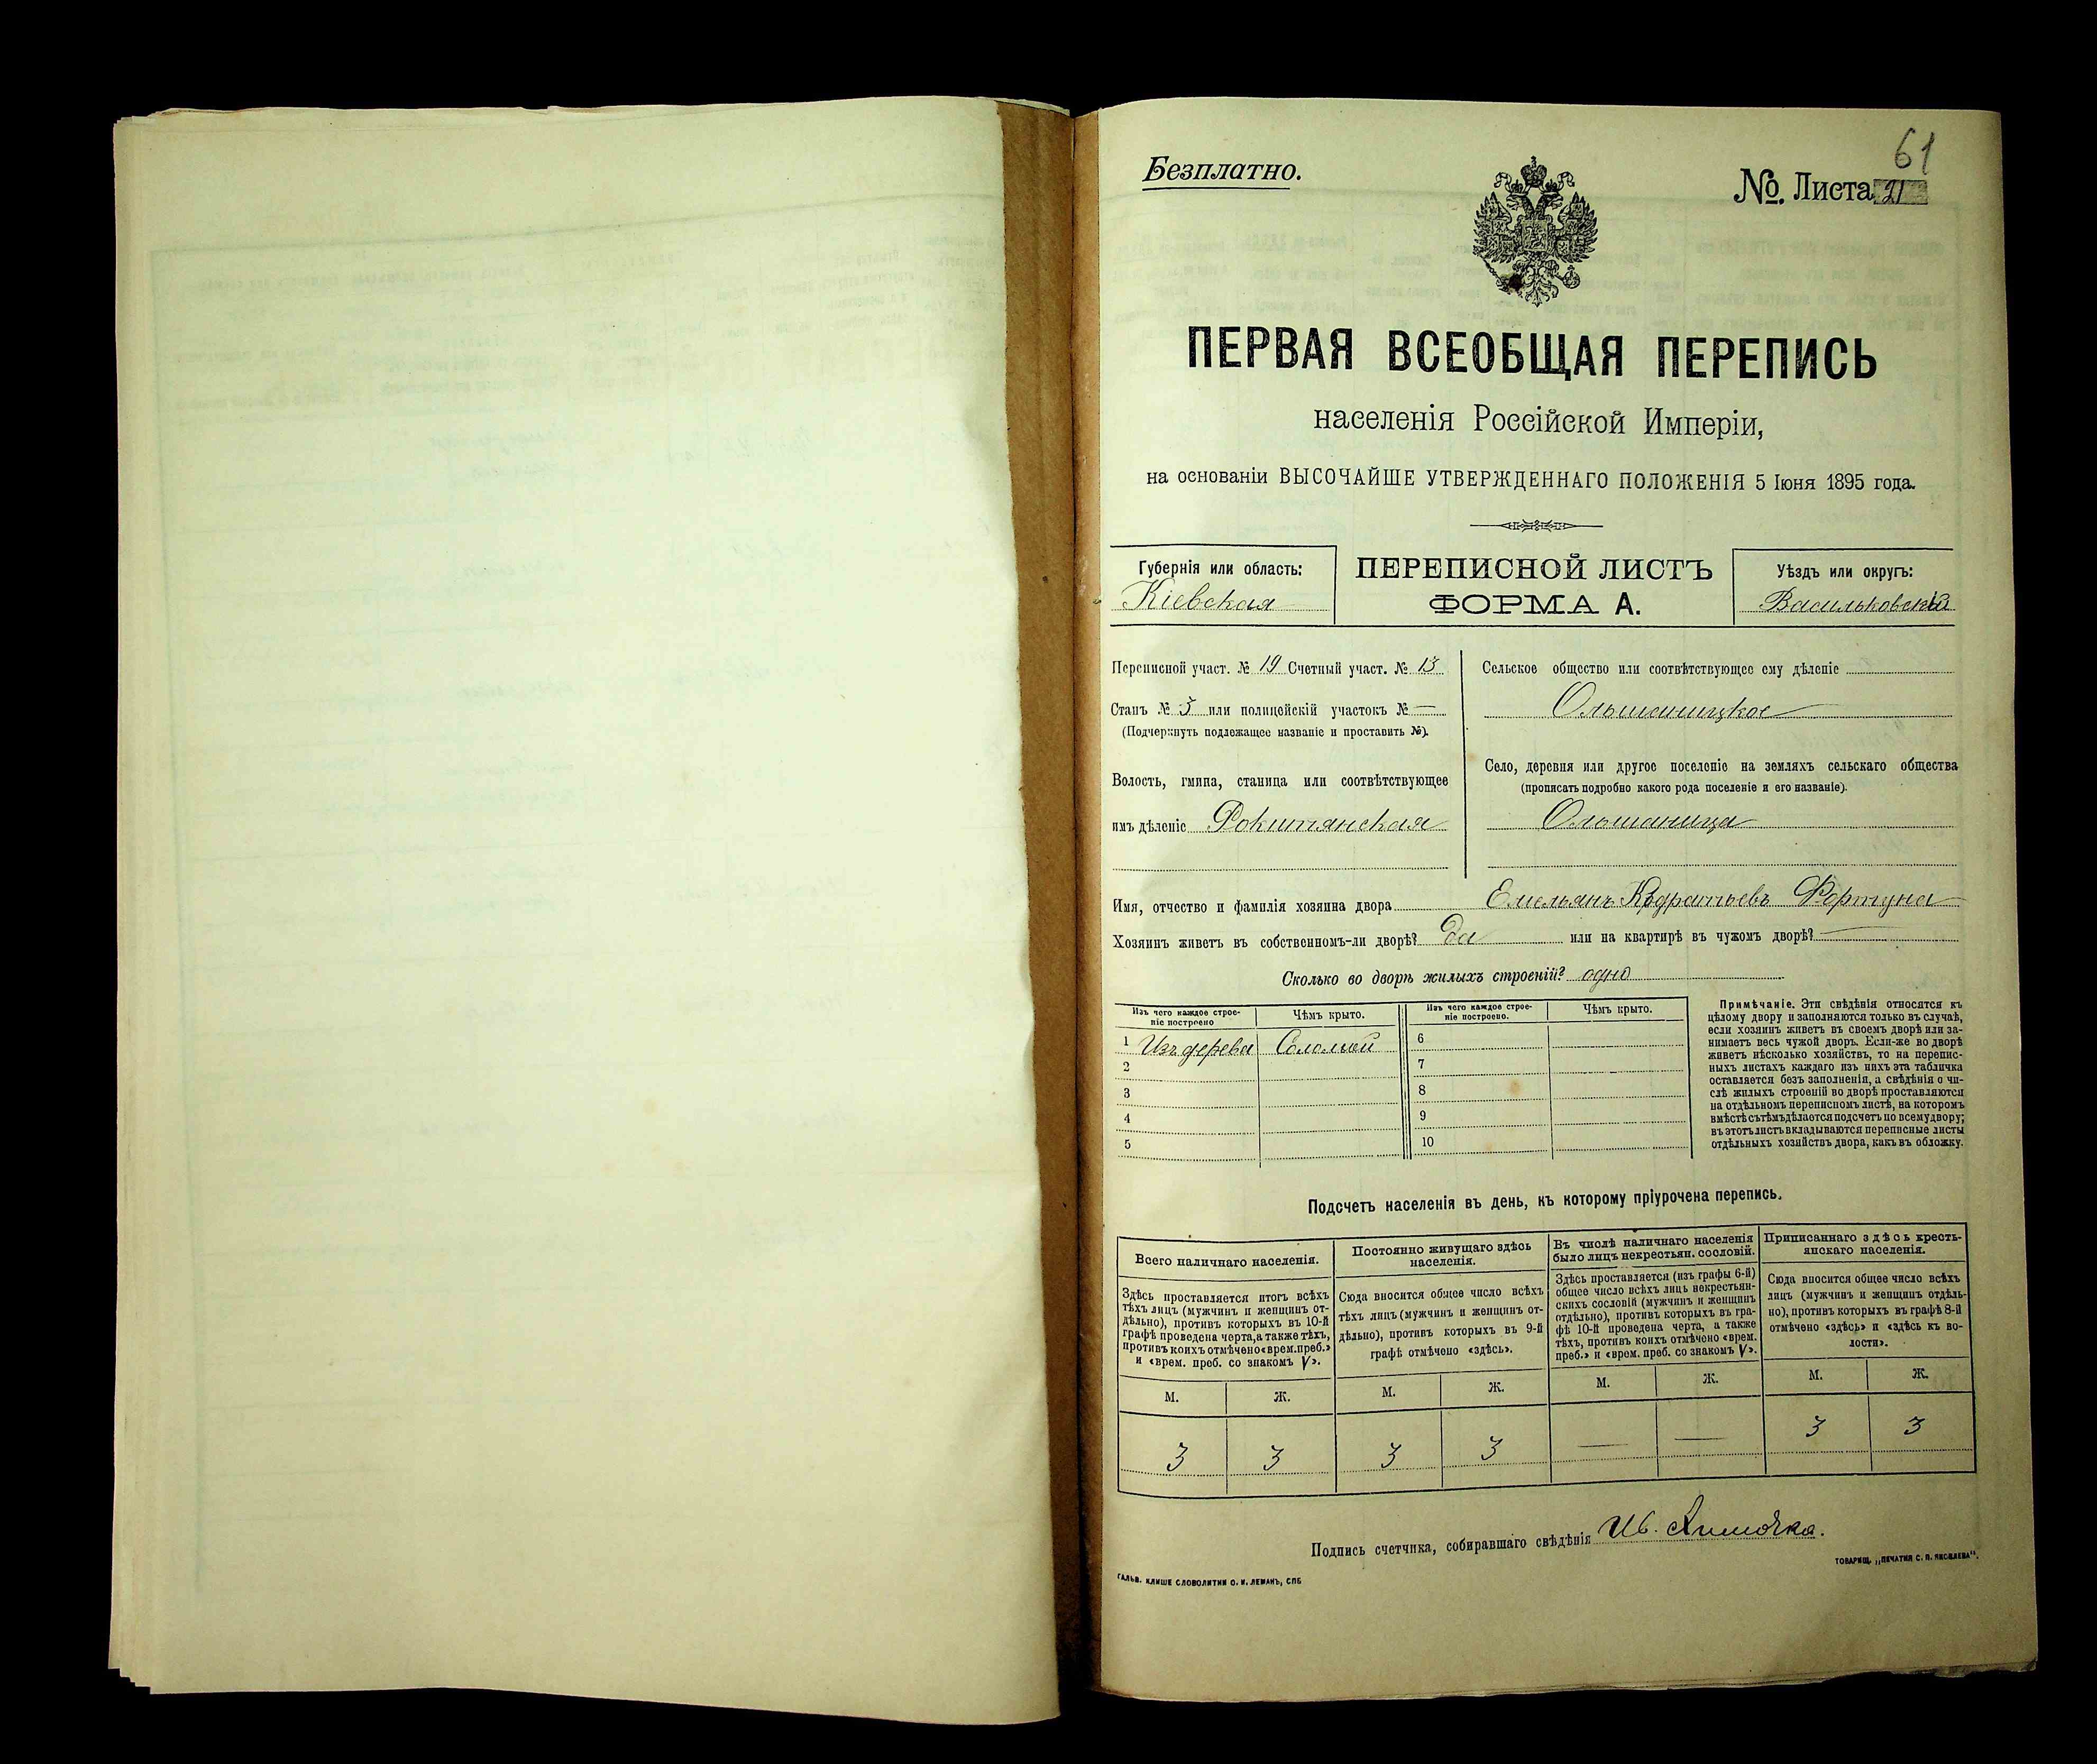 61
Безплатно.
№. Листа 21
ПЕРВАЯ ВСЕОБЩАЯ ПЕРЕПИСЬ
населенія Россійской Имперіи,
на основаніи ВЫСОЧАЙШЕ УТВЕРЖДЕННАГО ПОЛОЖЕНІЯ 5 Іюня 1895 года.
Губернія или область:
Кіевская
ПЕРЕПИСНОЙ ЛИСТЪ
ФОРМА А.
Уѣздъ или округъ:
Васильковскій
Переписной участ. № 19 Счетный участ. № 13
Станъ № 3 или полицейскій участокъ № —
(Подчеркнуть подлежащее названіе и проставить №).
Волость, гмина, станица или соотвѣтствующее
имъ дѣленіе Рокитянская
Сельское общество или соотвѣтствующее ему дѣленіе
Ольшаницкое
Село, деревня или другое поселеніе на земляхъ сельскаго общества
(прописать подробно какого рода поселеніе и его названіе).
Ольшаница
Имя, отчество и фамилія хозяина двора Емельянъ Кодратьевъ Фортуна
Хозяинъ живетъ въ собственномъ-ли дворѣ? да или на квартирѣ въ чужомъ дворѣ? —
Сколько во дворѣ жилыхъ строеній? одно
Изъ чего каждое строе-
ніе построено
Чѣмъ крыто.
Изъ чего каждое строе-
ніе построено.
Чѣмъ крыто.
1 Изъ дерева Соломой 6
2 7
3 8
4 9
5 10
Примѣчаніе. Эти свѣдѣнія относятся къ
цѣлому двору и заполняются только въ случаѣ,
если хозяинъ живетъ въ своемъ дворѣ или за-
нимаетъ весь чужой дворъ. Если-же во дворѣ
живетъ нѣсколько хозяйствъ, то на перепис-
ныхъ листахъ каждаго изъ нихъ эта табличка
оставляется безъ заполненія, а свѣдѣнія о чи-
слѣ жилыхъ строеній во дворѣ проставляются
на отдѣльномъ переписномъ листѣ, на которомъ
вмѣстѣ съ тѣмъ дѣлается подсчетъ по всему двору;
въ этотъ листъ вкладываются переписные листы
отдѣльныхъ хозяйствъ двора, какъ въ обложку.
Подсчетъ населенія въ день, къ которому пріурочена перепись.
Всего наличнаго населенія.
Здѣсь проставляется итогъ всѣхъ
тѣхъ лицъ (мужчинъ и женщинъ от-
дѣльно), противъ которыхъ въ 10-й
графѣ проведена черта, а также тѣхъ,
противъ коихъ отмѣчено «врем. преб.»
и «врем. преб. со знакомъ V».
Постоянно живущаго здѣсь
населенія.
Сюда вносится общее число всѣхъ
тѣхъ лицъ (мужчинъ и женщинъ от-
дѣльно), противъ которыхъ въ 9-й
графѣ отмѣчено «здѣсь».
Въ числѣ наличнаго населенія
было лицъ некрестьян. сословій.
Здѣсь проставляется (изъ графы 6-й)
общее число всѣхъ лицъ некрестьян-
скихъ сословій (мужчинъ и женщинъ
отдѣльно), противъ которыхъ въ гра-
фѣ 10-й проведена черта, а также
тѣхъ, противъ коихъ отмѣчено «врем.
преб.» и «врем. преб. со знакомъ V».
Приписаннаго здѣсь кресть-
янскаго населенія.
Сюда вносится общее число всѣхъ
лицъ (мужчинъ и женщинъ отдѣль-
но), противъ которыхъ въ графѣ 8-й
отмѣчено «здѣсь» и «здѣсь къ во-
лости».
М. Ж. М. Ж. М. Ж. М. Ж.
3 3 3 3 — — 3 3
Подпись счетчика, собиравшаго свѣдѣнія Ив.
ГАЛЬВ. КЛИШЕ СЛОВОЛИТНИ О. И. ЛЕМАНЪ, СПБ
ТОВАРИЩ. „ПЕЧАТНЯ С. П. ЯКОВЛЕВА“.